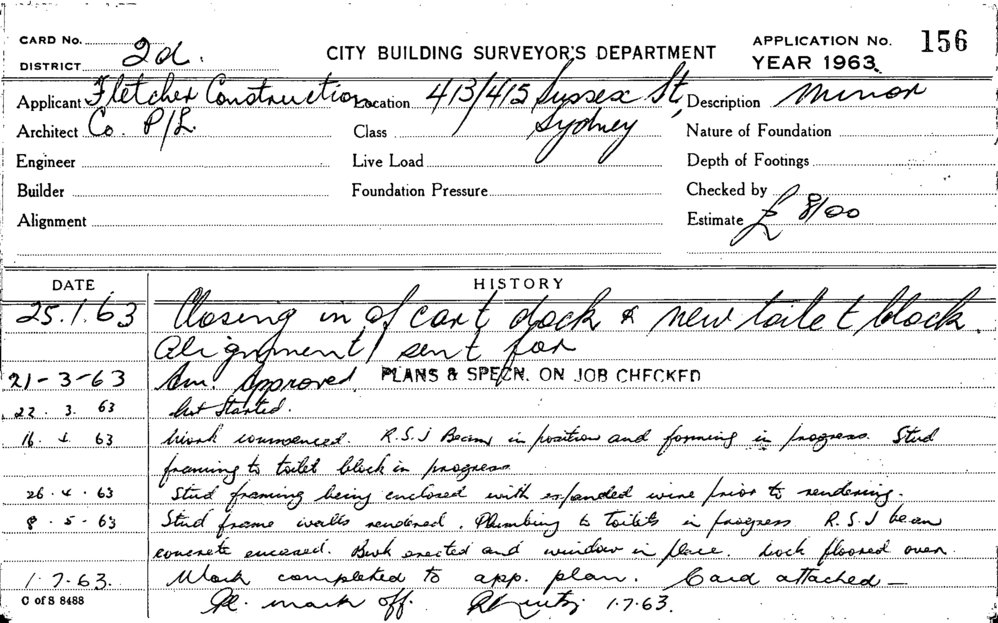 CARD No.
DISTRICT 2d.
CITY BUILDING SURVEYOR'S DEPARTMENT
APPLICATION No. 156
YEAR 1963
Applicant Fletcher Construction Location 413/415 Sussex St, Description Minor
Architect Co. P/L. Class Sydney Nature of Foundation
Engineer Live Load Depth of Footings
Builder Foundation Pressure Checked by
Alignment Estimate £ 8/00
DATE HISTORY
25.1.63 Closing in of cart dock & new toilet block.
Alignment sent for
21-3-63 Am. Approved. PLANS & SPECN. ON JOB CHECKED
22. 3. 63 Not Started.
16. 4 63 Work commenced. R.S.J Beams in position and forming in progress. Stud
framing to toilet block in progress
26. 4. 63 Stud framing being enclosed with expanded wire prior to rendering.
8. 5- 63 Stud frame walls rendered. Plumbing to toilets in progress R.S.J beam
concrete encased. Bwk erected and window in place. Dock floored over.
1.7.63. Work completed to app. plan. Card attached-
C of S 8488 Pl. mark off. 1.7.63.